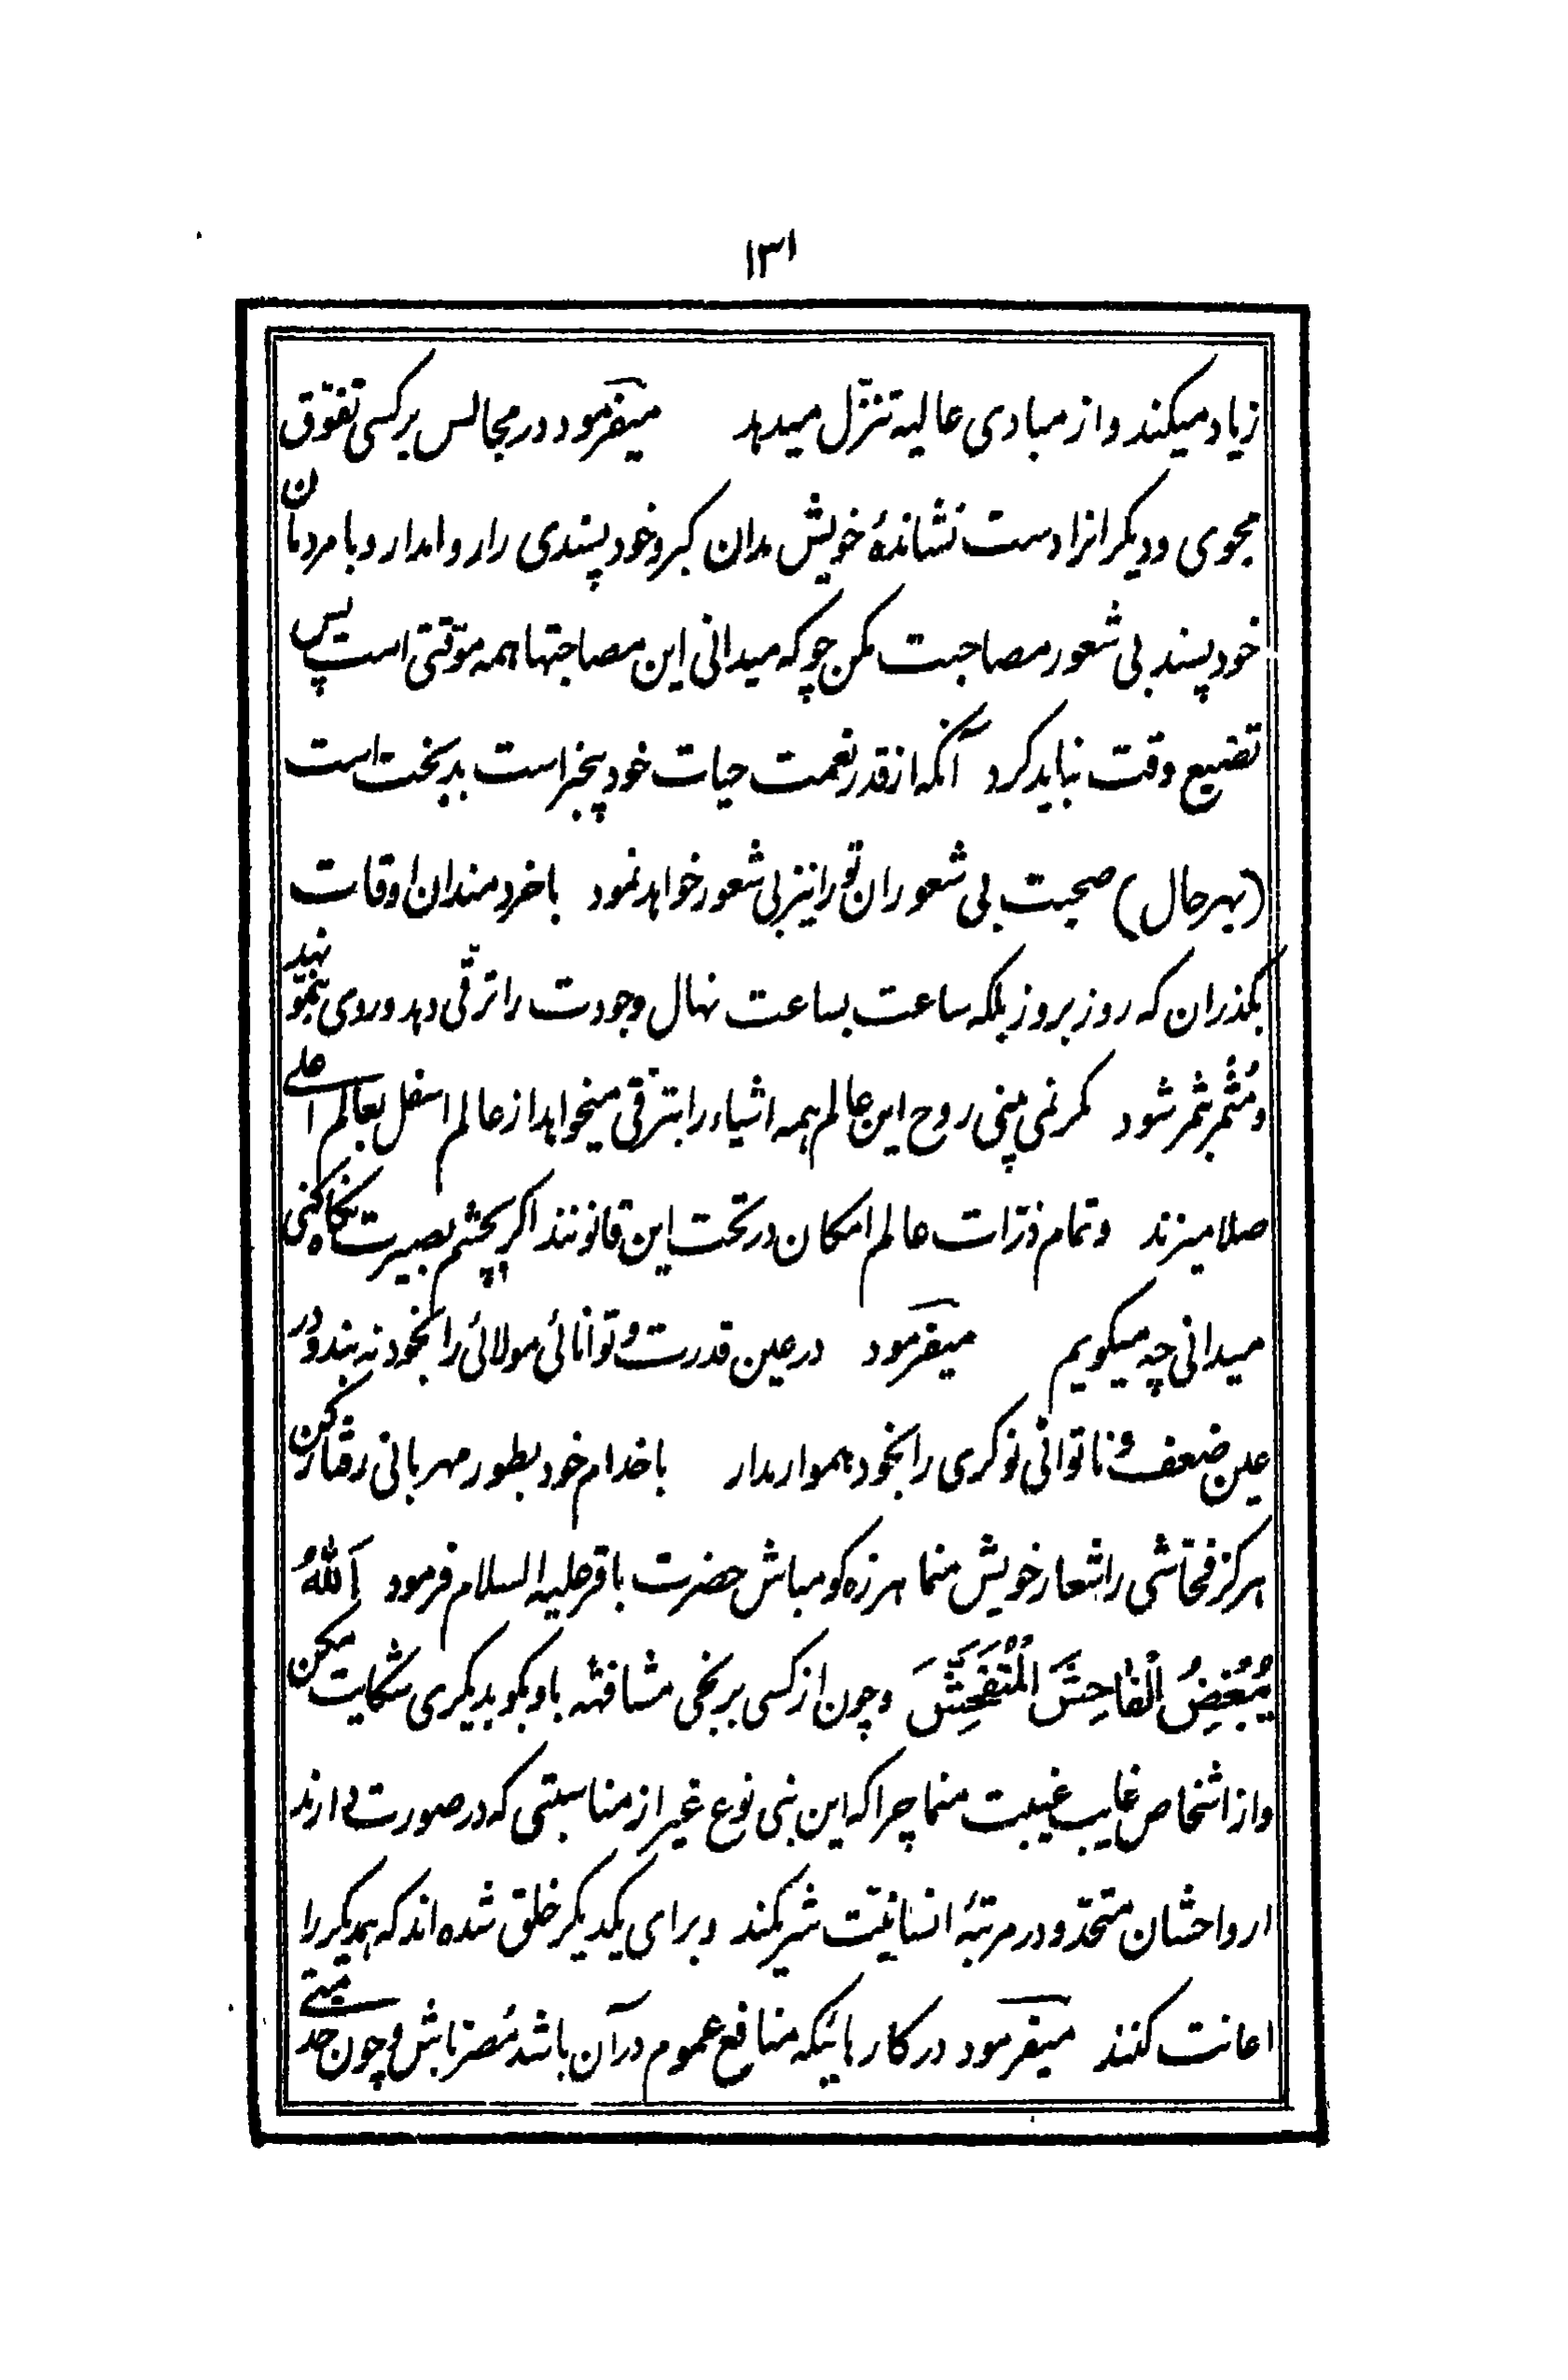 ۱۳۱
زیاد میکند و از مبادی عالیه تنزّل میدهد میفرمود در مجالس برکسی تفوّق
مجوی و دیگرانرا دست نشاندهٔ خویش مدان کبر و خود پسندی را روا مدار و با مردمان
خود پسند بی شعور مصاحبت مکن چو که میدانی این مصاحبتها همه موقتی است پس
تضییع وقت نباید کرد آنکه از قدر نعمت حیات خود بیخبر است بدبخت است
(بهر حال) صحبت بی شعوران تو را نیز بی شعور خواهد نمود با خردمندان اوقات
بگذران که روز بروز بلکه ساعت بساعت نهال وجودت را ترقّی دهد و روی بنموّ نهد
و مُثْمِر ثمر شود مگر نمی بینی روح این عالم همه اشیاء را بترقی میخواهد از عالم اسفل بعالم اعلی
صلا میزند و تمام ذرّات عالم امکان در تحت این قانونند اگر بچشم بصیرت نگاه کنی
میدانی چه میگویم میفرمود در عین قدرت و توانائی مولائی را بخود نه بند و در
عین ضعف و ناتوانی نوکری را بخود هموار مدار با خدام خود بطور مهربانی رفتار کن
هرگز فحّاشی را شعار خویش منما هرزه گو مباش حضرت باقر علیه السلام فرمود اَللّٰهُ
یُبْغِضُ الْفاحِشَ الْمُتَفَحِّشَ و چون از کسی برنجی مشافهةً باو بگو بدیگری شکایت مکن
و از اشخاص غایب غیبت منما چرا که این بنی نوع غیر از مناسبتی که در صورت دارند
ارواحشان متحدّ و در مرتبهٔ انسانیّت شریکند و برای یکدیگر خلق شده اند که همدیگر را
اعانت کنند میفرمود در کارهائیکه منافع عموم در آن باشد مُصرّ باش و چون خدمتی